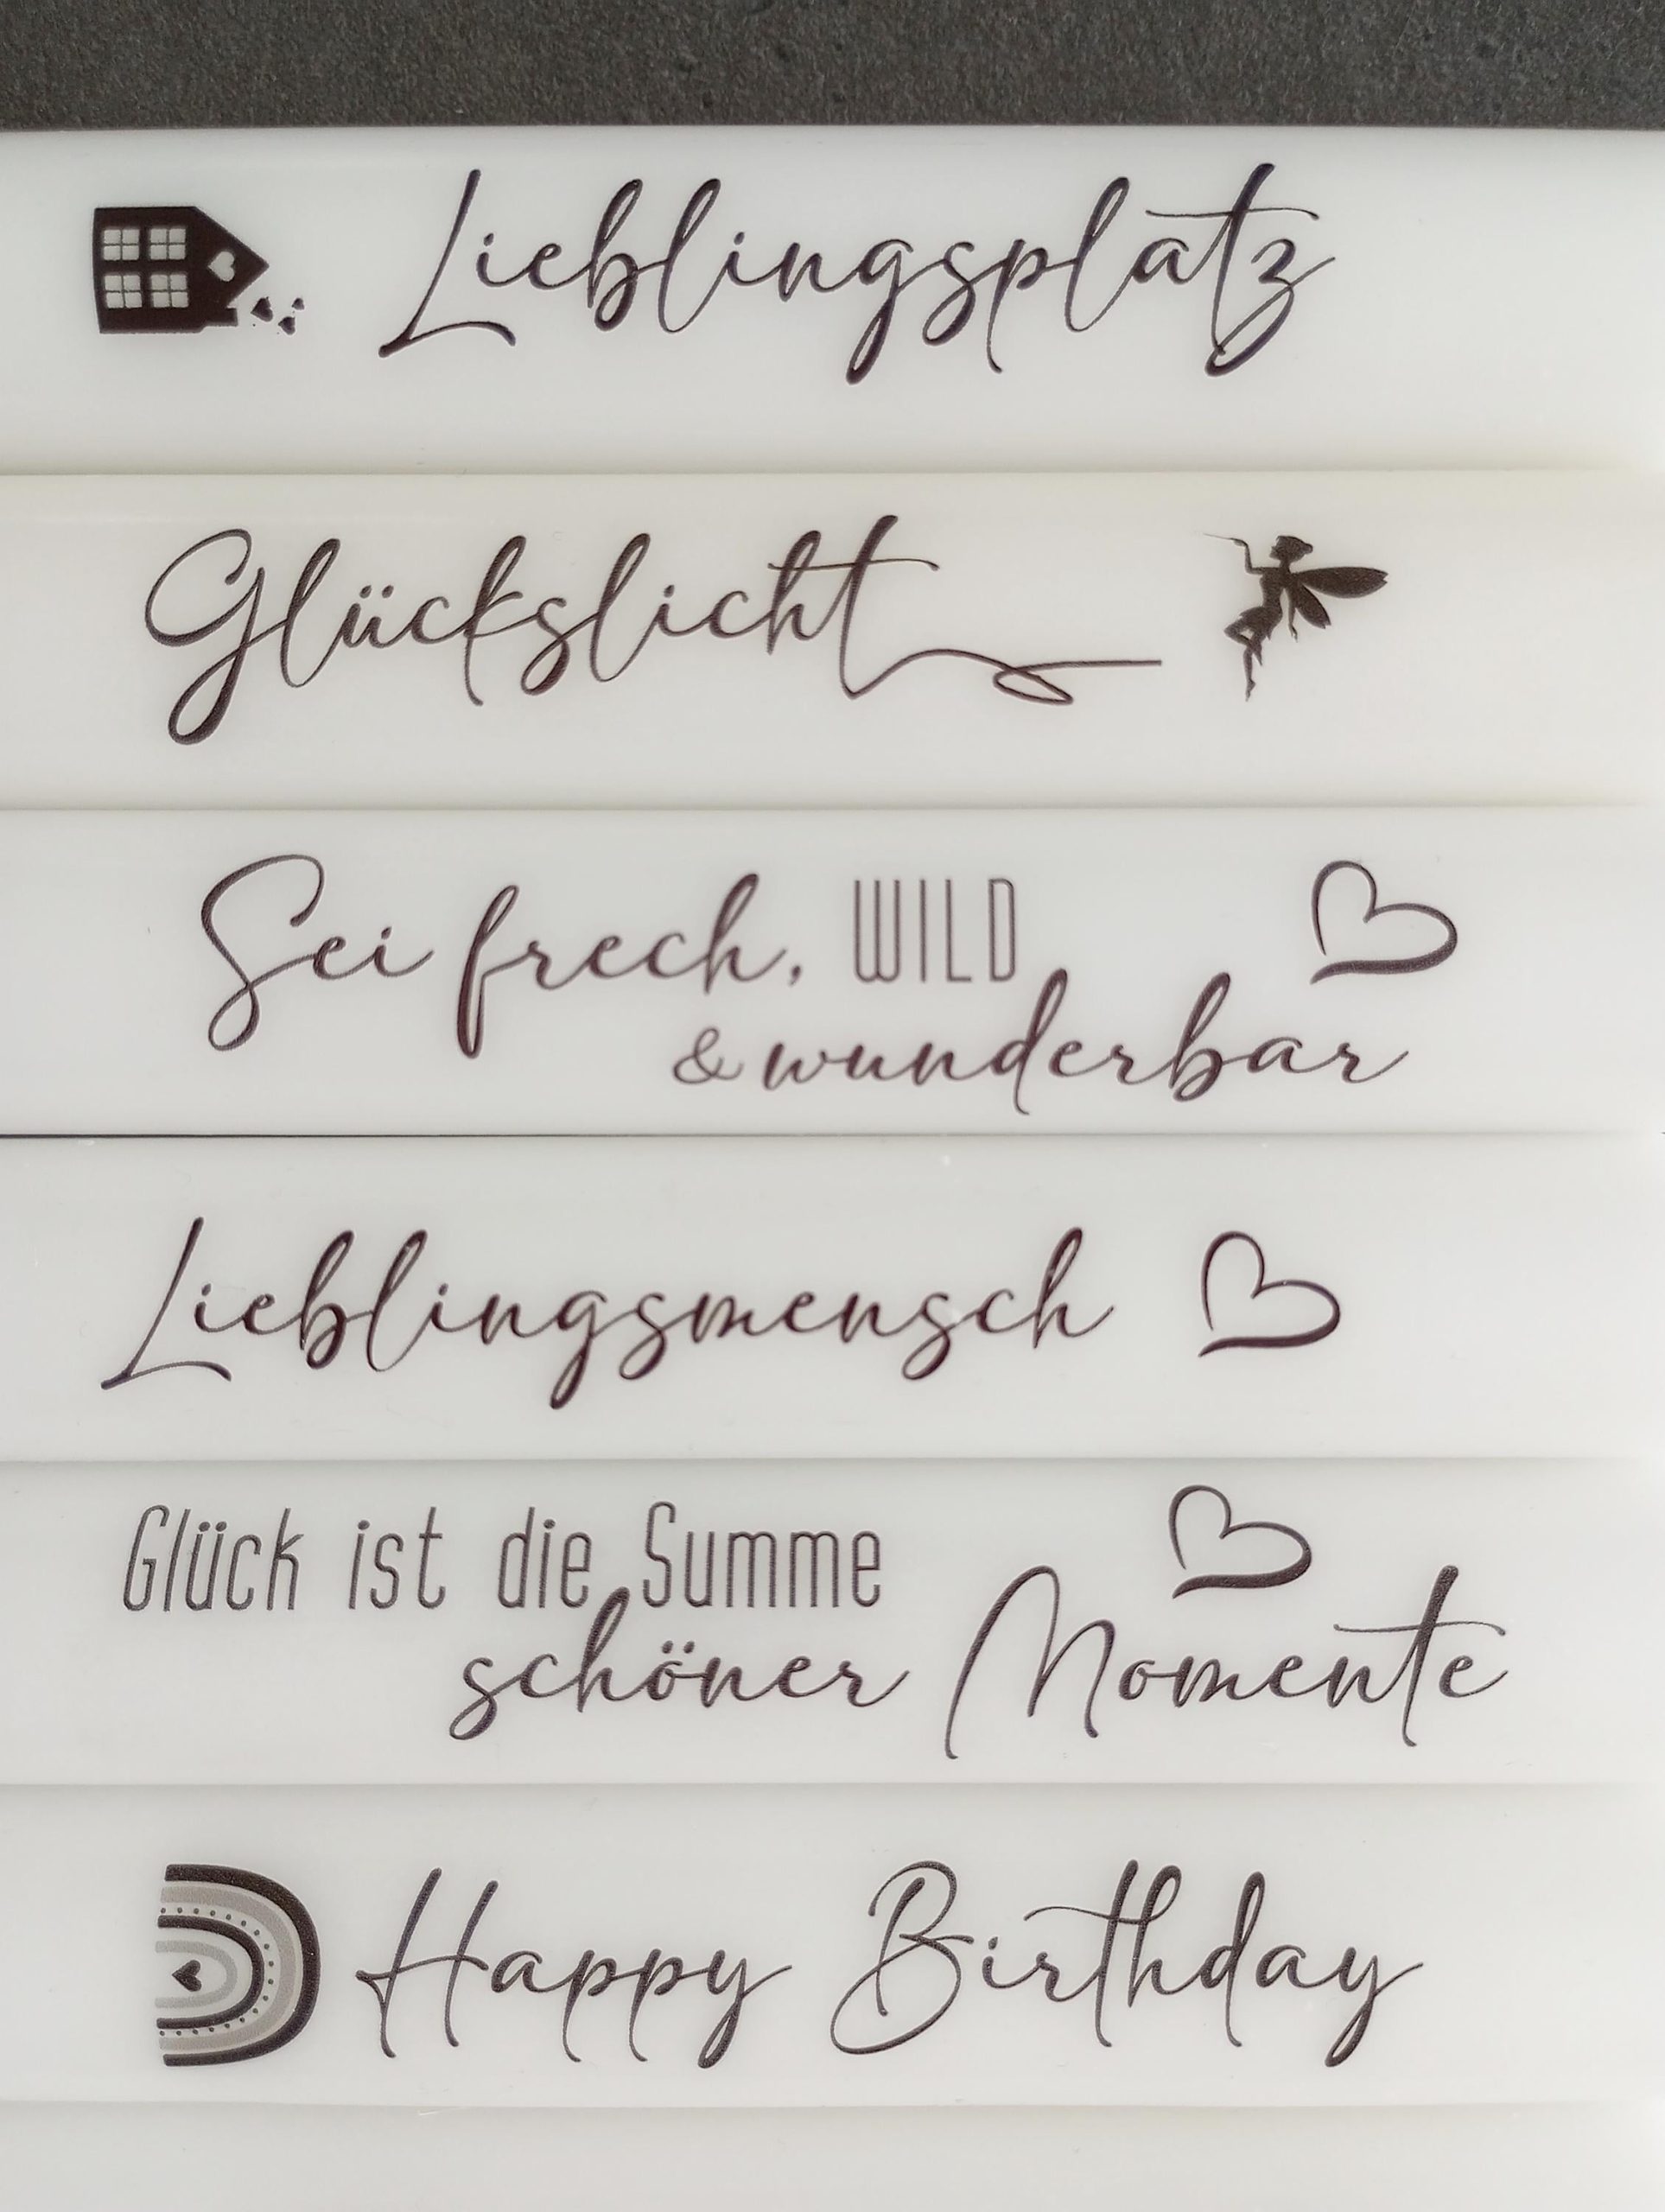 Lieblingsplatz
Glückslicht
Sei frech, WILD
& wunderbar
Lieblingsmensch
Glück ist die Summe
schöner Momente
Happy Birthday